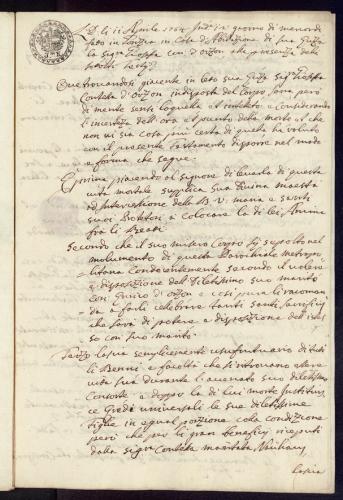 D. li 11 Aprile 1764 Ind. in giorno di mercordi
fatto in Gorizia in Casa d'Abitazione di sua Ecc.za
la Sig.ra Cont. d'Orzon alla presenza delli
infra.tti Testij
Que trovandosi giacente in leto sua Ecc.za Sig.ra
Contessa d'Orzon indisposta del Corpo, sana però
di mente sensi loquella et inteleto, e considerando
l'incertezza dell'ora et punto della morte et che
non vi sia cosa più certa di questa ha voluto
con il presente testamento disporre nel modo
e forma che segue.
E prima piacendo al Signore di levarla di questa
vita mortale supplica sua Divina Maestà
ad intercessione della B. V. Maria e Santi
suoi Protetori a colocare la di lei Anima
fra li Beati
Secondo che il suo misero Corpo sij sepolto nel
molumento di questa Parochiale metropo
litana condecentemente secondo il volere
e disposizione dell Diletissimo suo marito
Con. d'Orzon e così pure li racoman
da a farli celebrare tanti santi sacrificij
che sarà di potere e disposizione dell istes
so con.te suo marito
Terzo lascia semplicemente usufrutuario di tutti
li Benni, e facoltà che si ritrovano
vita sua durante l'accenato suo diletissimo
Consorte e doppo la di lui morte Instituis
ce Eredi universali le sue diletissime
figlie in egual porzione colla condizione
però che per li gran beneficij riceputi
dalla Sig.ra Contessa maritata
lascia